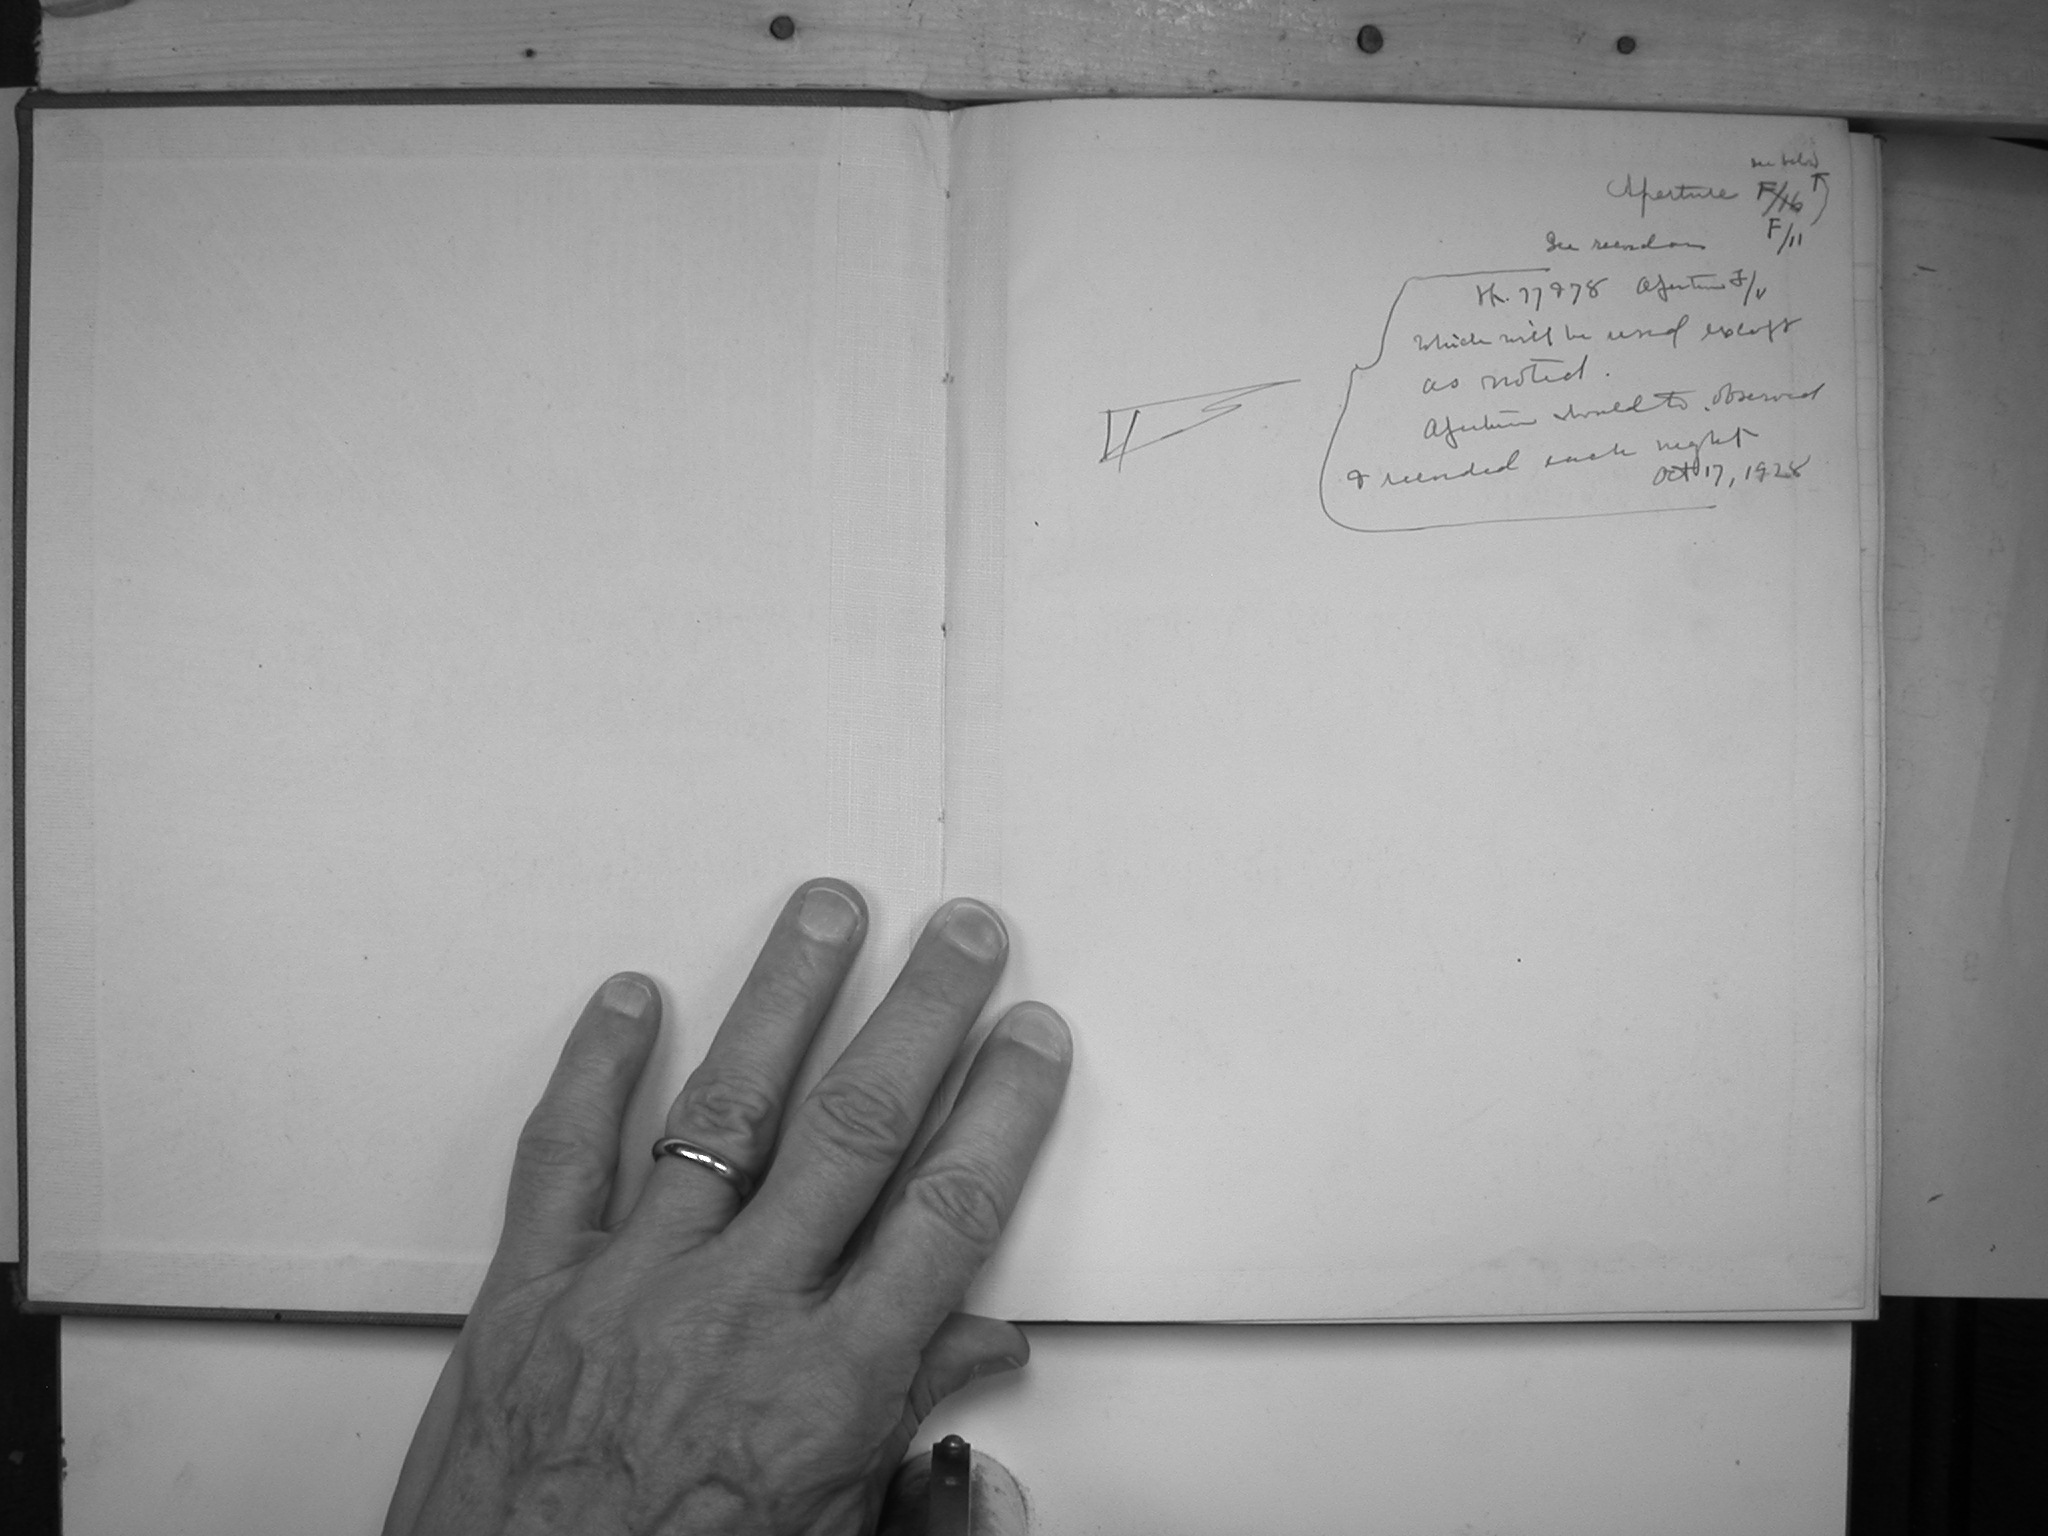 see below
Aperture F/16
F/11
See record on
H. 77978 Aperture F/
which will be used except
as noted.
Aperture should be observed
& recorded each night
Oct 17, 1928